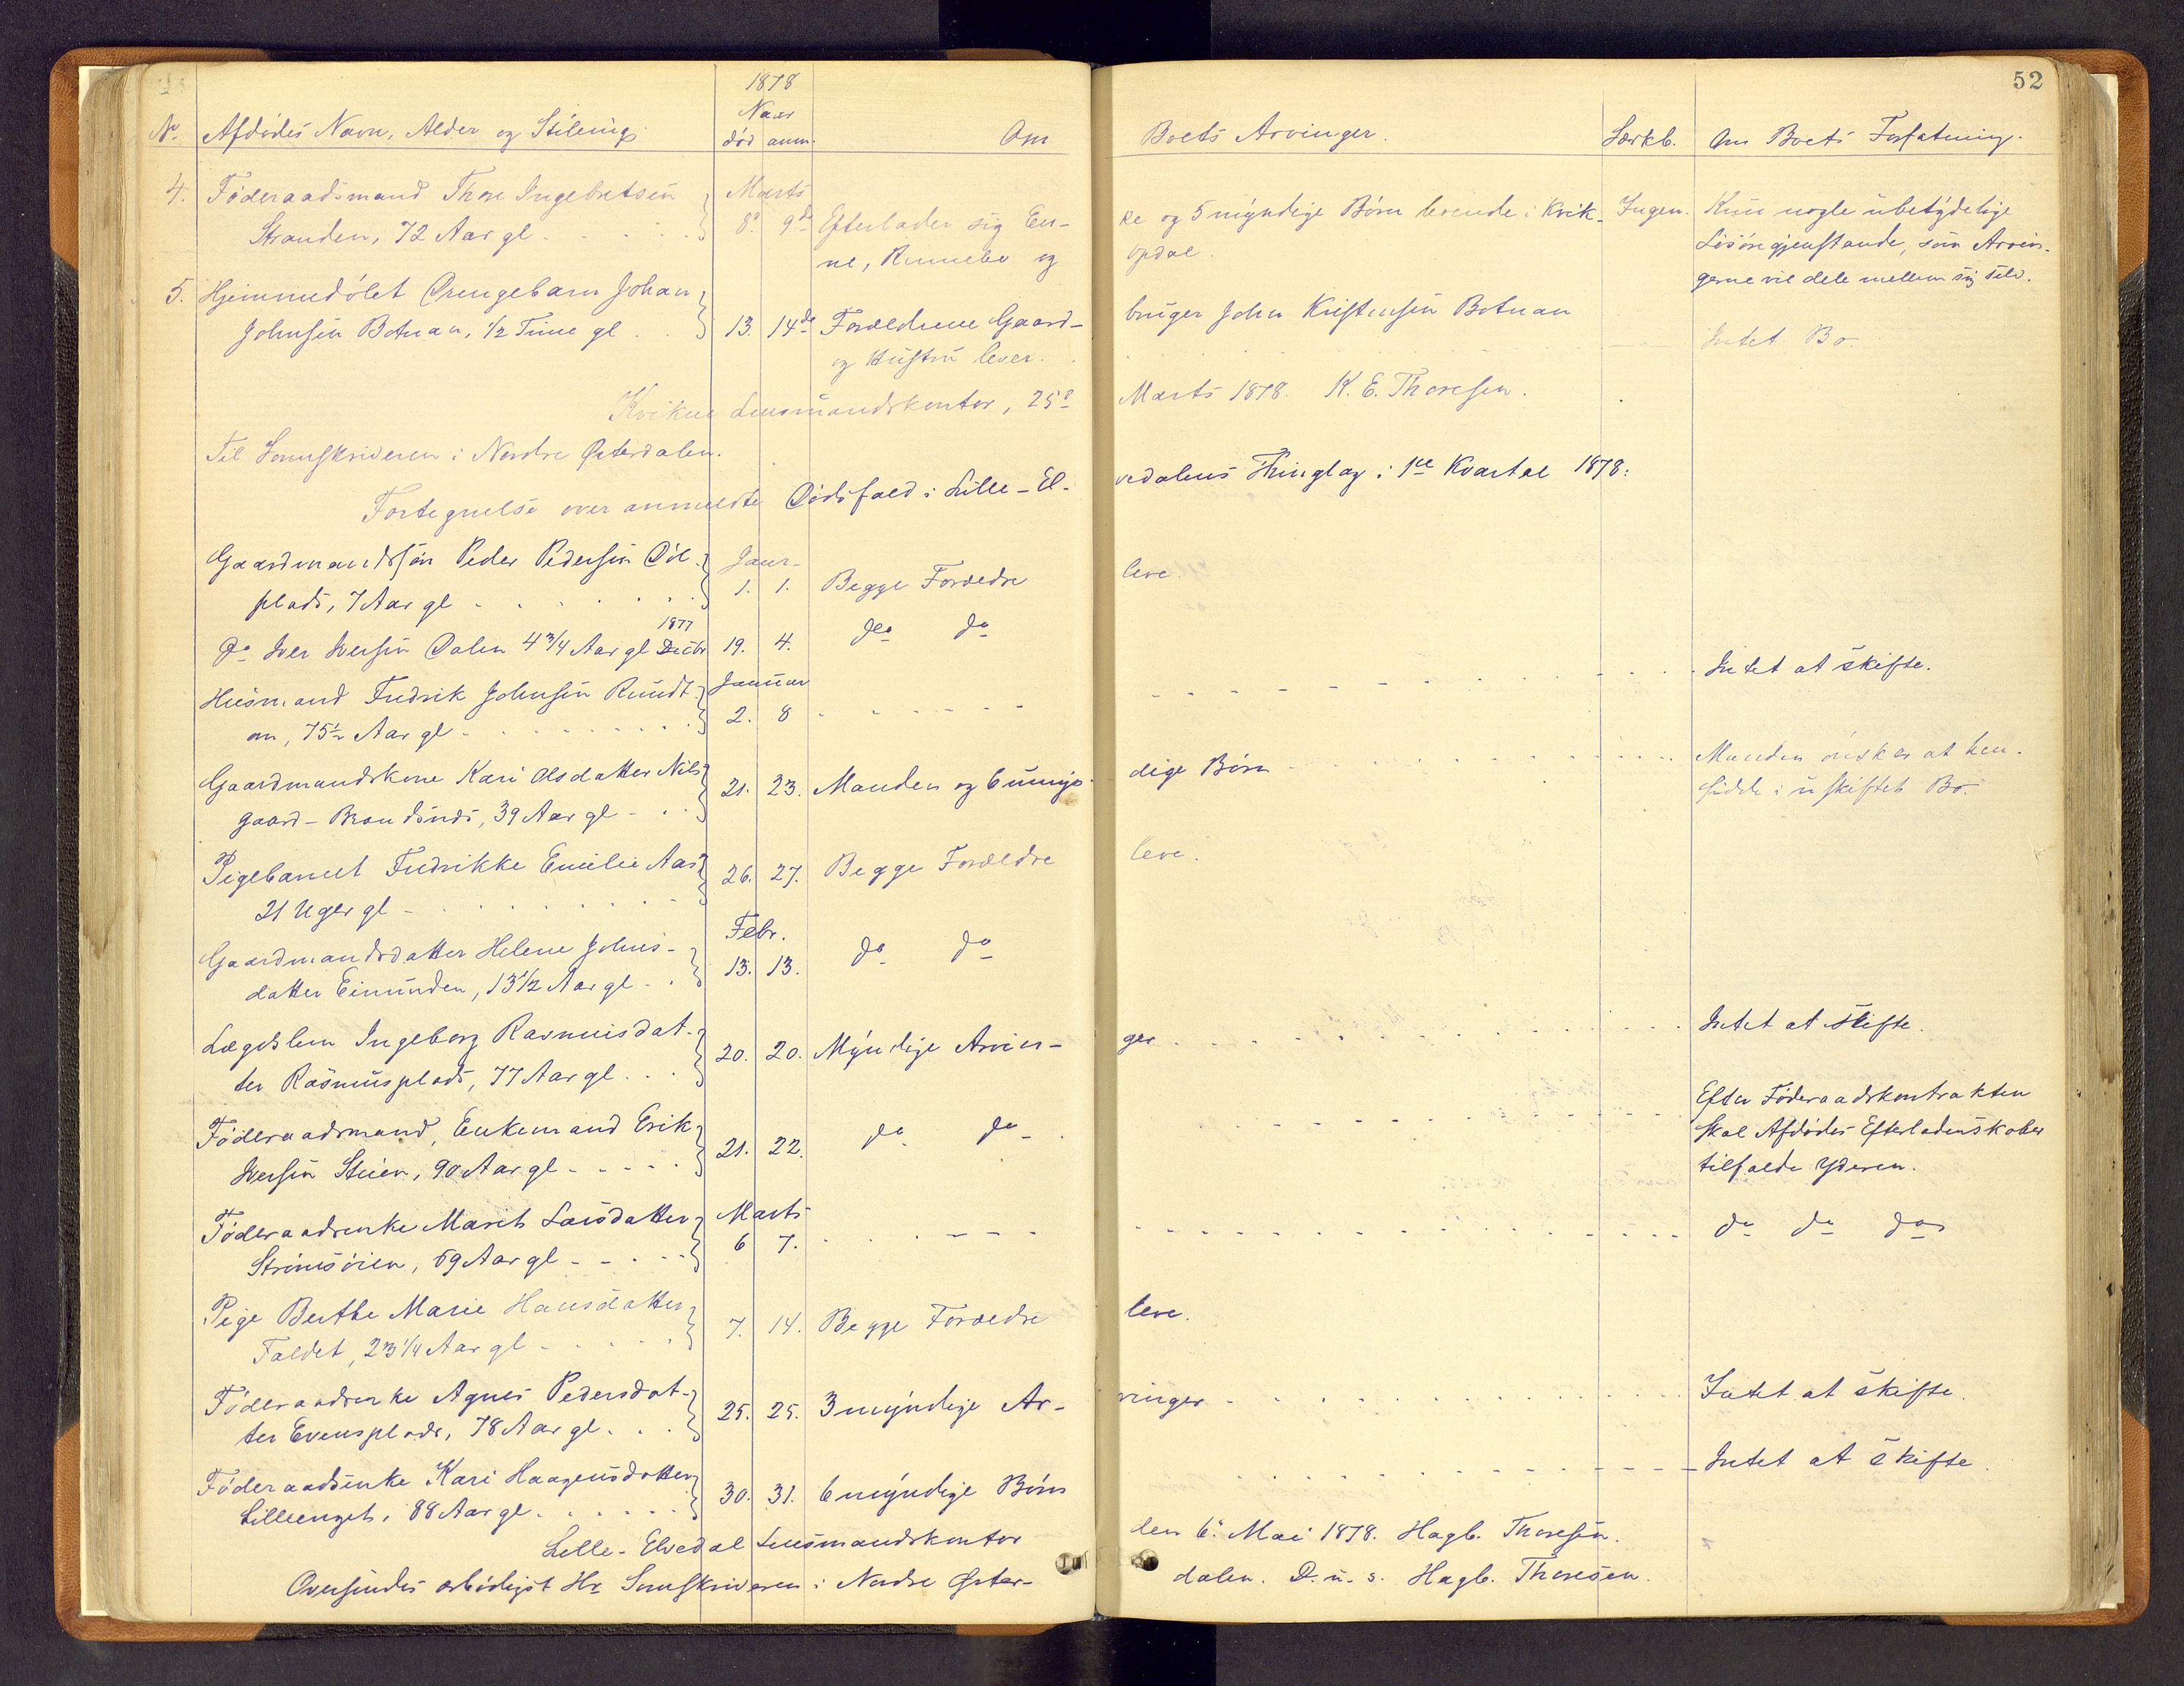 52
1878
Naar
No. Afdødes Navn, Alder og Stilling. død anm. Om Boets Arvinger. Særkb. Om Boets Forfatning.
4. Føderaadsmand Thore Ingebretsen Marts
Stranden, 72 Aar gl. 8de 9de Efterlader sig En-
ke og 5 myndige Børn levende i Kvik- Ingen. Kun nogle ubetydelige
ne, Rennebo og Opdal. Løsøregjenstande, som Arvin-
gerne vil dele mellem sig selv.
5. Hjemmedøbt Drengebarn Johan
Johnsen Botnan, 1/2 Time gl. 13. 14de Forældrene Gaard-
bruger John Kristensen Botnan
og Hustru lever. Intet Bo.
Kvikne Lensmandskontor, 25de Marts 1878. K. E. Thoresen.
Til Sorenskriveren i Nordre Østerdalen.
Fortegnelse over anmeldte Dødsfald i Lille-Elvedalens Thinglag i 1ste Kvartal 1878:
Gaardmandssøn Peder Pedersen Døl- Janr.
plads, 7 Aar gl. 1. 1. Begge Forældre leve.
1877
Do Iver Iversen Dalen 4 3/4 Aar gl. Decbr 19. 4. do do
Husmand Fredrik Johnsen Rundt- Januar
om, 75 1/2 Aar gl. 2. 8 Intet at skifte.
Gaardmandskone Kari Olsdatter Nils-
gaard-Brandsnds, 39 Aar gl. 21. 23. Manden og 6 umyn-
dige Børn Manden ønsker at hen-
sidde i uskiftet Bo.
Pigebarnet Fredrikke Emilie Aas
21 Uger gl. 26. 27. Begge Forældre leve.
Gaardmandsdatter Helene Johns- Febr.
datter Eimunden, 13 1/2 Aar gl. 13. 13. do do
Lægdslem Ingeborg Rasmusdat-
ter Rasmusplads, 77 Aar gl. 20. 20. Myndige Arvin-
ger Intet at skifte.
Føderaadsmand, Enkemand Erik
Iversen Steien, 90 Aar gl. 21. 22. do do
Efter Føderaadskontrakten
skal Afdødes Efterladenskaber
tilfalde Yderen.
Føderaadsenke Marit Larsdatter Marts
Strømsøien, 69 Aar gl. 6 7. do do do
Pige Berthe Marie Hansdatter
Faldet, 23 1/4 Aar gl. 7. 14. Begge Forældre leve.
Føderaadsenke Agnes Pedersdat-
ter Evensplads, 78 Aar gl. 25. 25. 3 myndige Ar-
vinger Intet at skifte.
Føderaadsenke Kari Haagensdatter
Lilleenget, 88 Aar gl. 30. 31. 6 myndige Børn Intet at skifte.
Lille-Elvedal Lensmandskontor den 6te Mai 1878. Hagb. Thoresen.
Oversendes ærbødigst Hr Sorenskriveren i Nordre Østerdalen. D.u.s. Hagb. Thoresen.